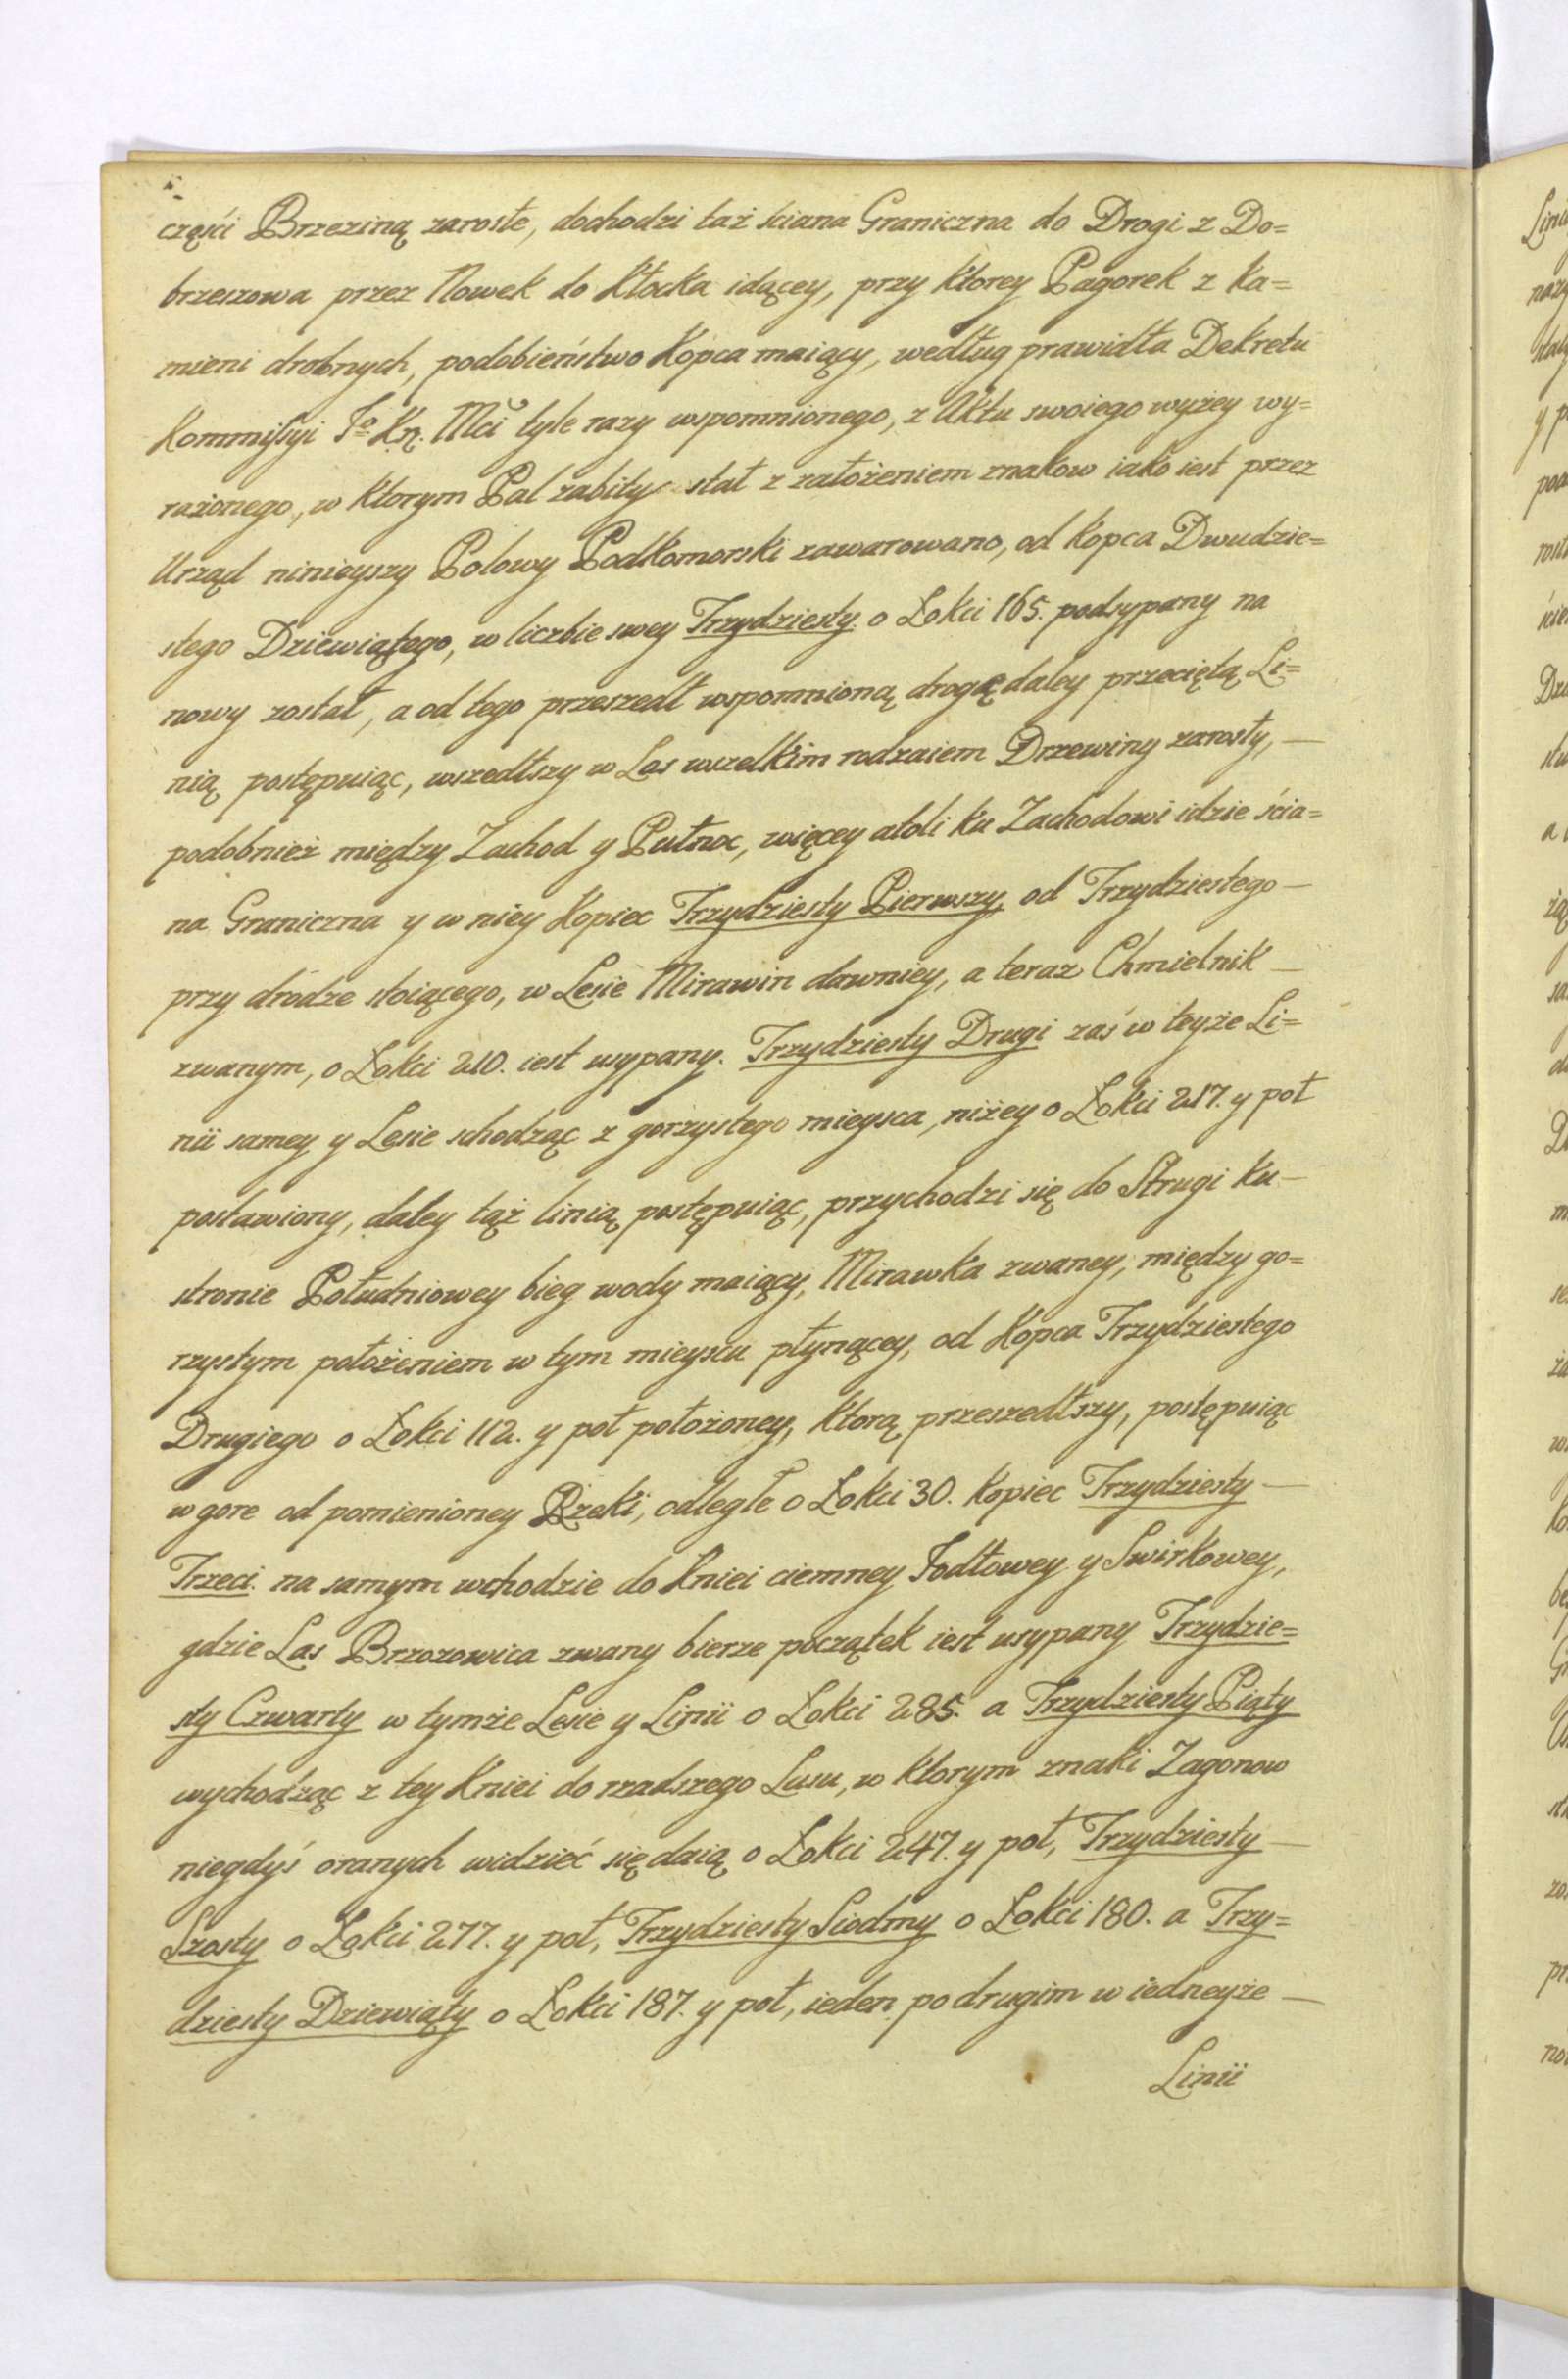 części Brzeziną zarosłe, dochodzi taż ściana Graniczna do Drogi z Do=
brzeszowa przez Nowek do Kłocka idącey, przy ktorey Pagorek z ka=
mieni drobnych, podobieństwo Kopca maiący, według prawidła Dekretu
Kommissyi Jo Kr. Mci tyle razy wspomnionego, z Aktu swoiego wyżey wy=
rażonego, w ktorym Pal zabity stał z założeniem znakow iako iest przez
Urząd ninieyszy Polowy Podkomorski zawarowano, od kopca Dwudzie=
stego Dziewiątego, w liczbie swey Trzydziesty o Łokci 165. podsypany na
nowy został, a od tego przeszedł wspomnioną drogę daley przeciętą Li=
nią postępuiąc, wszedłszy w Las wszelkim rodzaiem Drzewiny zarosły, —
podobnież między Zachod y Pułnoc, więcey atoli ku Zachodowi idzie ścia=
na Graniczna y w niey Kopiec Trzydziesty Pierwszy od Trzydziestego —
przy dródze stoiącego, w Lesie Mirawin dawniey, a teraz Chmielnik —
zwanym, o Łokci 210. iest usypany. Trzydziesty Drugi zaś w teyże Li=
nii samey y Lesie schodząc z gorzystego mieysca, niżey o Łokci 217. y poł
postawiony, daley tąż linią postępuiąc, przychodzi się do Strugi ku —
stronie Południowey bieg wody maiący, Mirawka zwaney, między go=
rzystym położeniem w tym mieyscu płynącey, od Kopca Trzydziestego
Drugiego o Łokci 112. y poł położoney, ktorą przeszedłszy, postępuiąc
w gore od pomienioney Rzeki, odległe o Łokci 30. kopiec Trzydziesty —
Trzeci. na samym wchodzie do Kniei ciemney Jodłowey y Swirkowey,
gdzie Las Brzozowica zwany bierze początek iest usypany Trzydzie=
sty Czwarty w tymże Lesie y Linii o Łokci 285. a Trzydziesty Piąty
wychodząc z tey Kniei do rzadszego Lasu, w ktorym znaki Zagonow
niegdyś oranych widzieć się daią o Łokci 247. y poł, Trzydziesty —
Szosty o Łokci 277. y poł, Trzydziesty Siodmy o Łokci 180. a Trzy=
dziesty Dziewiąty o Łokci 187. y poł, ieden po drugim w iedneyże —
Linii